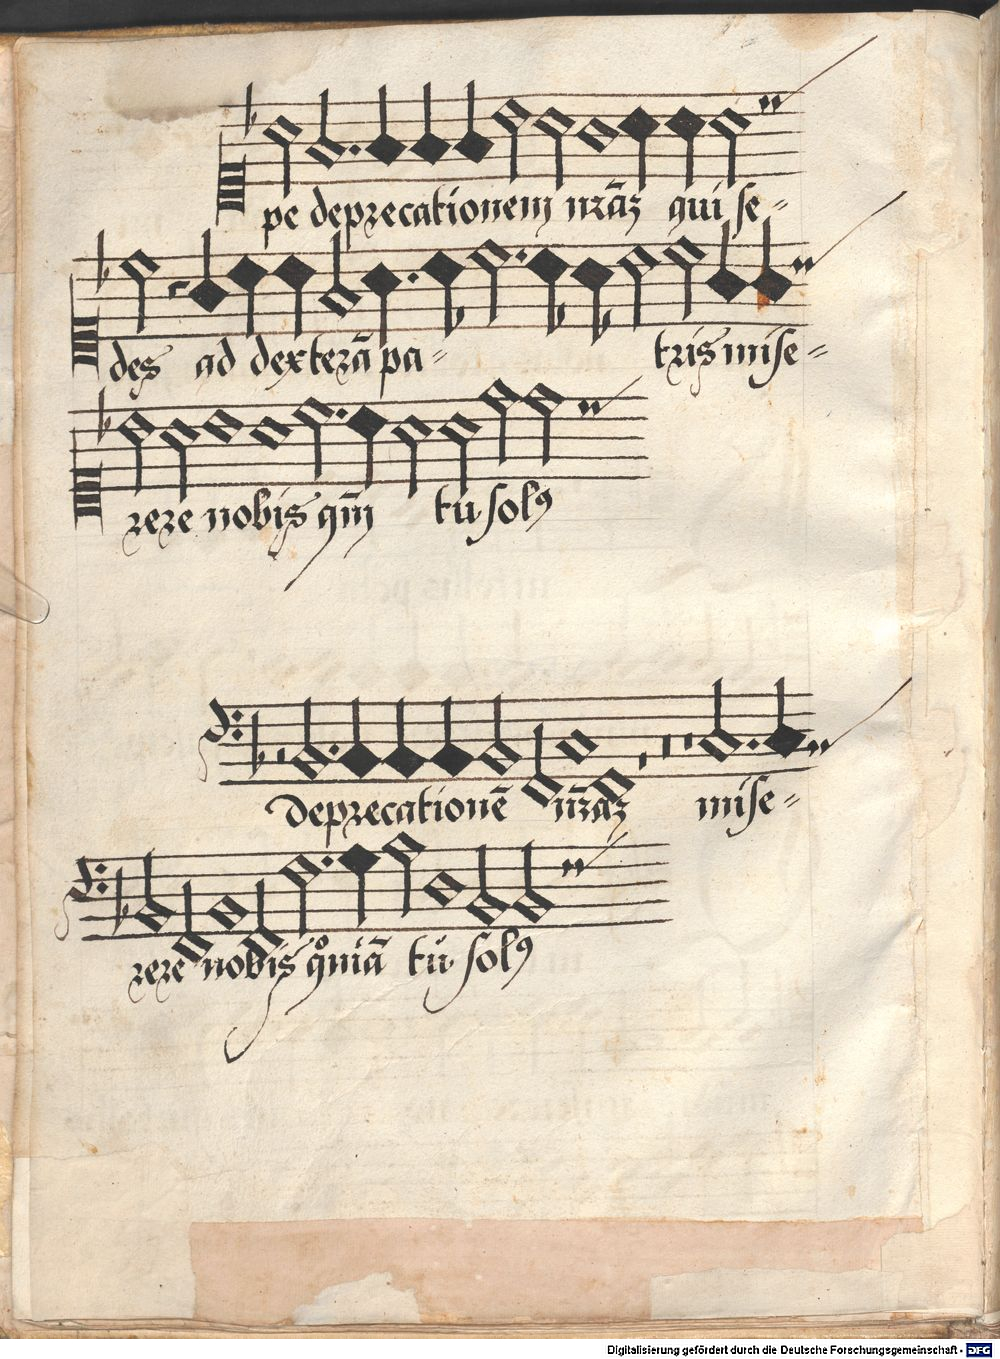 pe deprecationem nrāz qui se=
des ad dexterā pa= tris mise=
rere nobis qm̄ tu solꝰ
deprecationē nrāz mise=
rere nobis qͦniā tu solꝰ
Digitalisierung gefördert durch die Deutsche Forschungsgemeinschaft - DFG